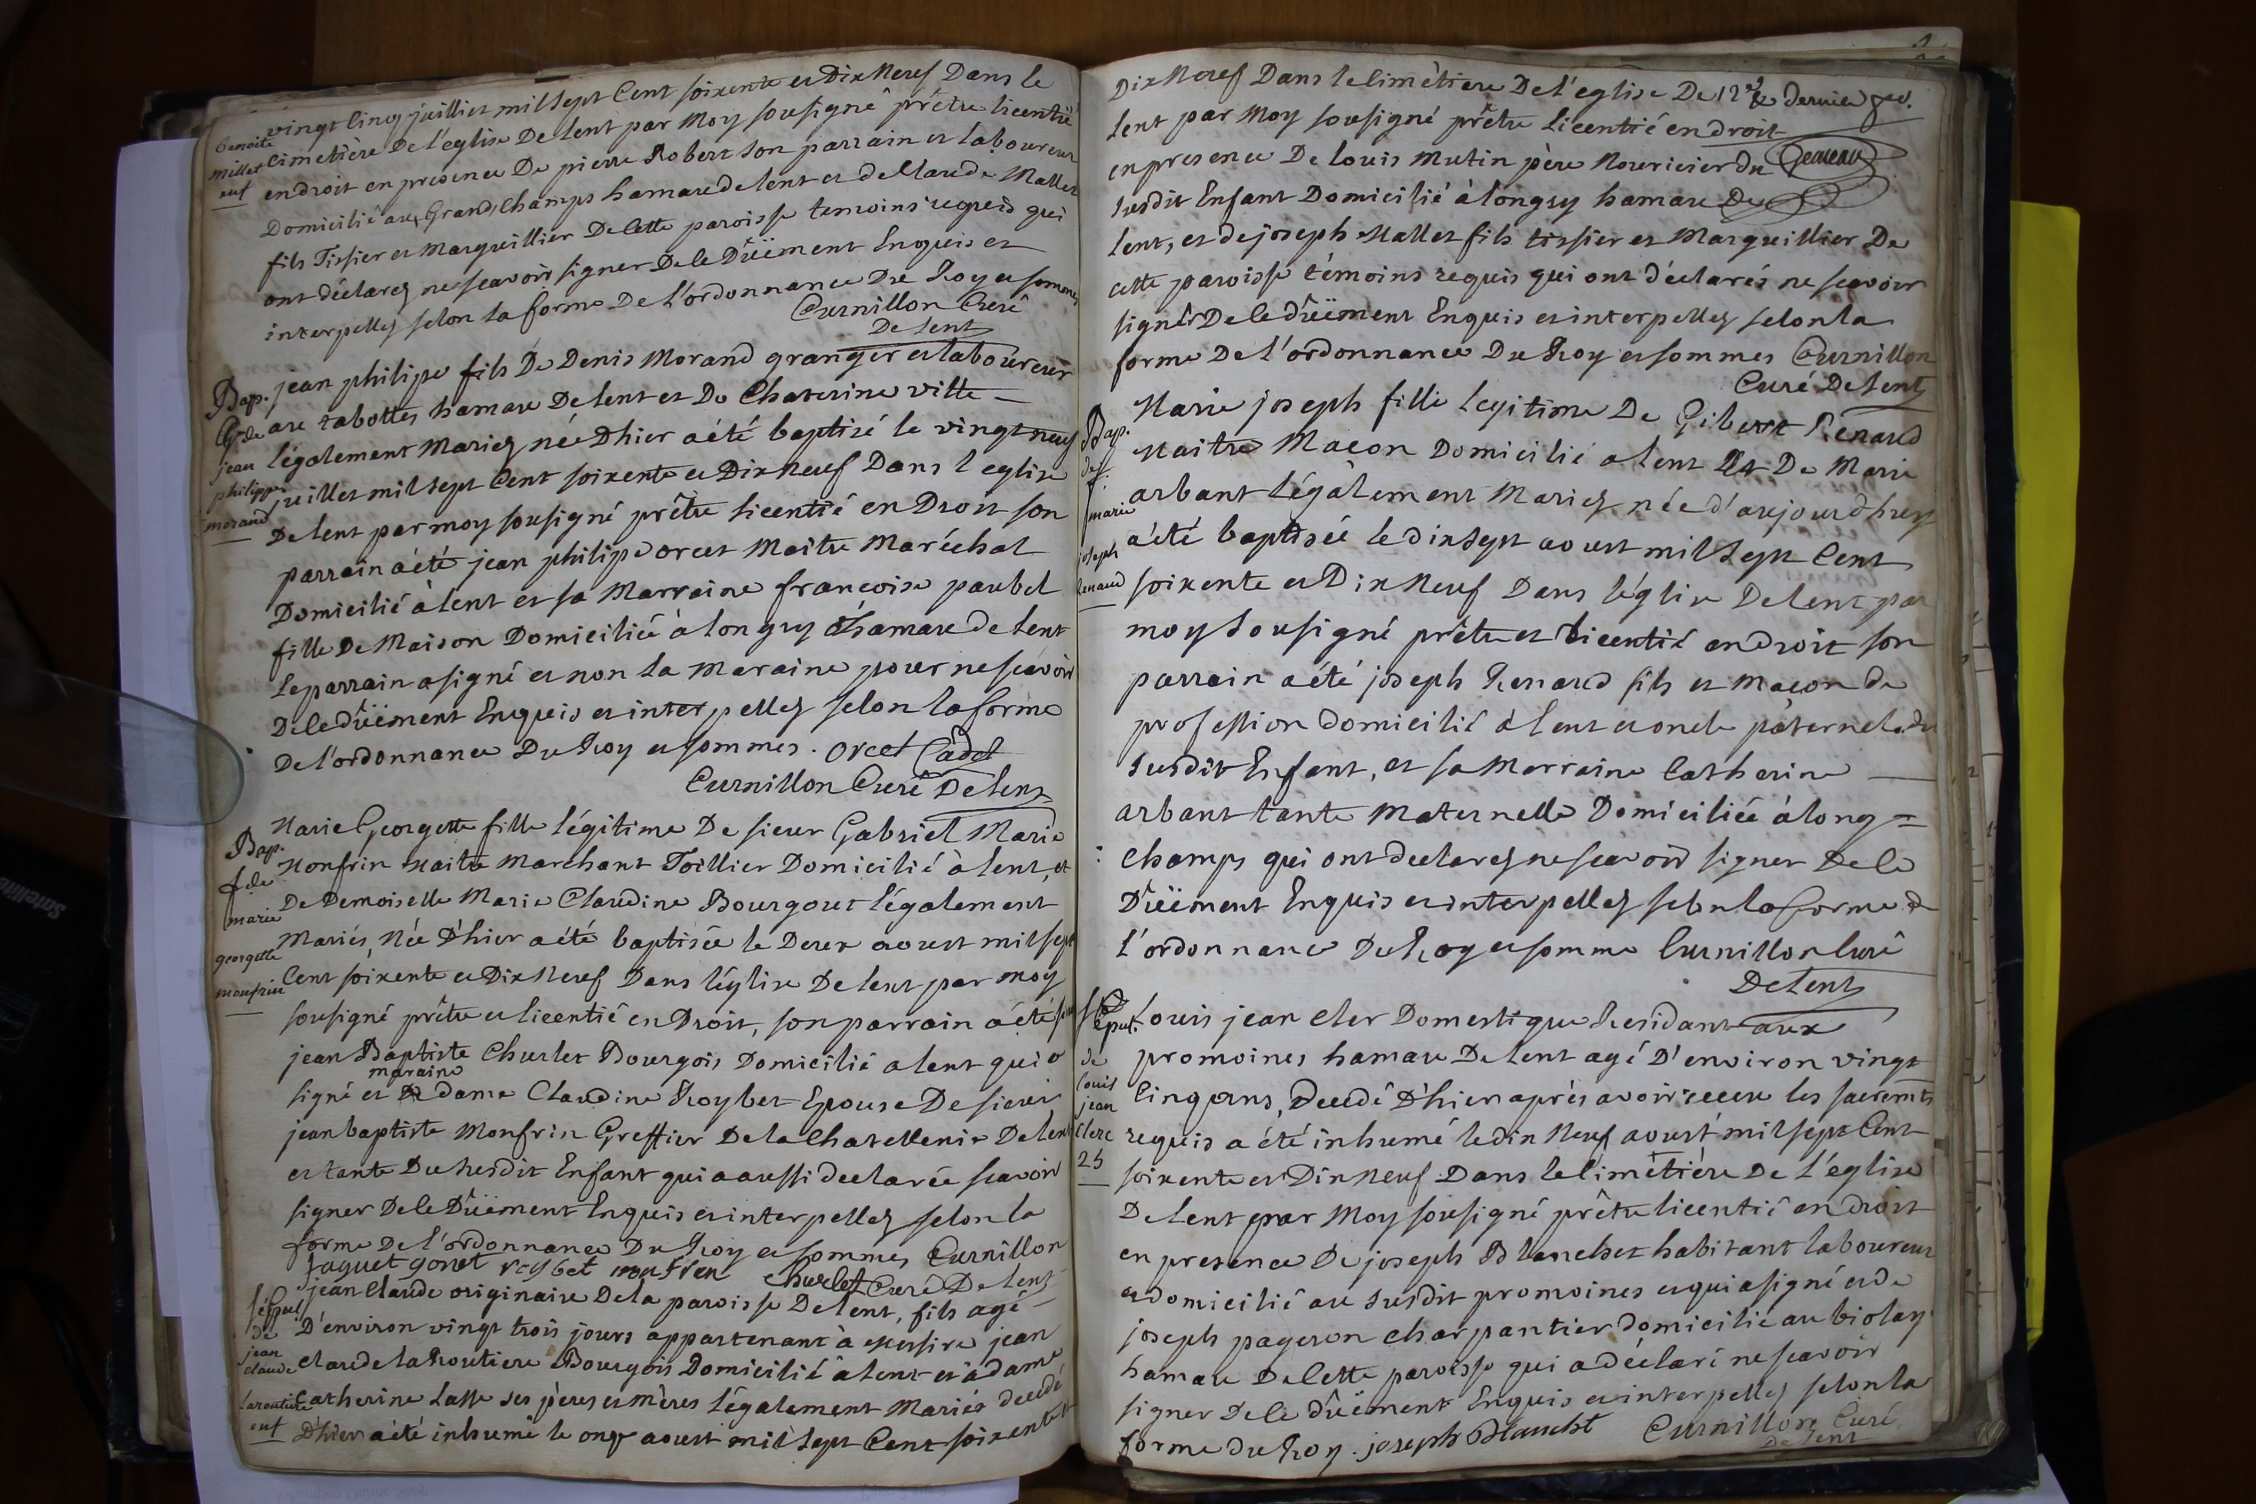 vingt cinq juilliet mil sept Cent soixente et Dix Neuf Dans le
benoite
millet
enf
cimetière De l'eglise De lent par Moy sousigné prêtre licentié
en droit en presence De pierre Robert son parrain et laboureur
Domicilié aux Grands Champs hamau de lent et de Claude Mallet
fils Tissier et Marguillier De cette paroisse temoins requis qui
ont déclarez ne scavoir signer De le Düëment Enquis et
interpellez selon la forme De l'ordonnance Du Roy et sommes
Curnillon Curé
De lent
Bap.
de
jean
philippe
morand
jean philipe fils De Denis Morand granger et laboureur
au rabottes hamau De lent et De Chaterine ville
légalement Mariez né D'hier a été baptisé le vingt neuf
juillet mil sept Cent soixente et Dix Neuf Dans l eglise
De lent par moy sousigné prêtre licentié en Droit son
parrain a été jean philipe orcet Maitre Maréchal
Domicilié à lent et sa Marraine francoise paubel
fille De Maison Domiciliée à longry hamau de lent
le parrain a signé et non la maraine pour ne scavoir
De le düëment Enquis et interpellez selon la forme
De l'ordonnance Du Roy et sommes . orcet Cadet
Curnillon Curé De lent
Bap.
f. de
marie
georgette
monfrin
Marie Georgette fille légitime De sieur Gabriel Marie
Monfrin Maitre Marchant Toillier Domicilié à lent, et
De Demoiselle Marie Claudine Bourgout légalement
Mariés, Née D'hier a été baptisée le Deux aoust mil sept
Cent soixente et Dix Neuf Dans l'églize De lent par moy
sousigné prêtre et licentié en Droit, son parrain a été sieur
jean Baptiste Churlet Bourgois Domicilié a lent qui a
maraine
signé et dame Claudine Roybet Epouse De sieur
jean baptiste Monfrin Greffier De la Chatellenie De lent
et tante Du susdit Enfant qui a aussi declarée scavoir
signer De le Düëment Enquis et interpellez selon la
forme De l'ordonnance Du Roy et sommes Curnillon
jaquet gonet reybet monfren Churlet Curé De lent
sépul
de
jean
claude
laroutiere
enf
jean Claude originaire De la paroisse De lent, fils agé
D'environ vingt trois jours appartenant à Messire jean
claude la Routiere Bourgois Domicilié à lent et à dame
Catherine Lasse ses pères et mères légalement Mariés decedé
D'hier a été inhumé le onze aoust mil sept Cent soixente et
Dix Neuf Dans le Cimètiere De l'église De 12e & dernier feu.
lent par Moy sousigné prêtre licentié en droit
en presence De louis Mutin père Nouricier du
susdit Enfant Domicilié à longry hamau De
lent, et de joseph Mallet fils tissier et Marguillier De
cette paroisse témoins requis qui ont déclarés ne scavoir
signer De le düëment Enquis et interpellez selon la
forme De l'ordonnance Du Roy et sommes Curnillon
Curé De lent
Bap.
de
f.
marie
joseph
Renaud
Marie joseph fille legitime De Gibert Renaud
Maitre Macon Domicilié a lent Et De Marie
arbant légàlement Mariez née d'aujourd'huy
a été baptisée le dix sept aoust mil sept Cent
soixente et Dix Neuf Dans l'églize De lent par
moy sousigné prêtre et licentié en droit son
parrain a été joseph Renaud fils et macon de
profession domicilié à lent et oncle paternel du
susdit Enfant, et sa Marraine Catherine
arbant tante Maternelle Domiciliée à long=
champs qui ont declarez ne scavoir signer De le
Düëment Enquis et interpellez selon la forme de
l'ordonnance Du Roy et somme Curnillon Curé
De lent
Sépul.
de
louis
jean
Clerc
25
Louis jean cler Domestique Residant aux
promoines hamau De lent agé D'environ vingt
Cinq ans, Decedé D'hier après avoir receu les sacremts
requis a été inhumé le dix Neuf aoust mil sept Cent
soixente et Dix Neuf Dans le Cimètière De l'église
De lent par Moy sousigné prêtre licentié en droit
en presence De joseph Blanchet habitant laboureur
et domicilié au susdit promoines et qui a signé et de
joseph pageron charpantier domicilié au biolay
hamau De Cette paroisse qui a déclaré ne scavoir
signer De le düëment Enquis et interpellez selon la
forme du Roy . joseph Blanchet Curnillon Curé
De lent